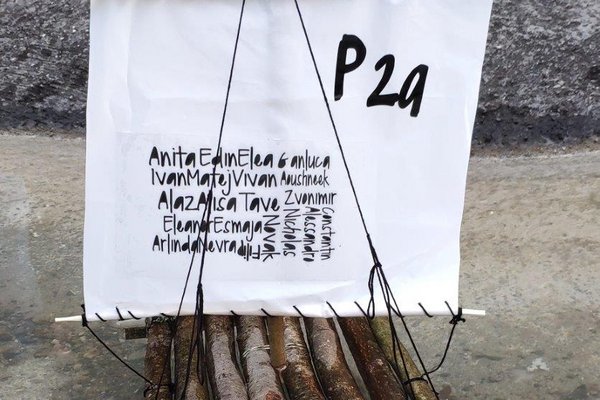 P2a
Anita Edin Elea Gianluca
Ivan Matej Vivan Anushneek
Alaz Alisa Tave Zvonimir
Eleanor Esmaja
Arlinda Nevra Filip
Novak
Nicholas
Alessandro
Constantin